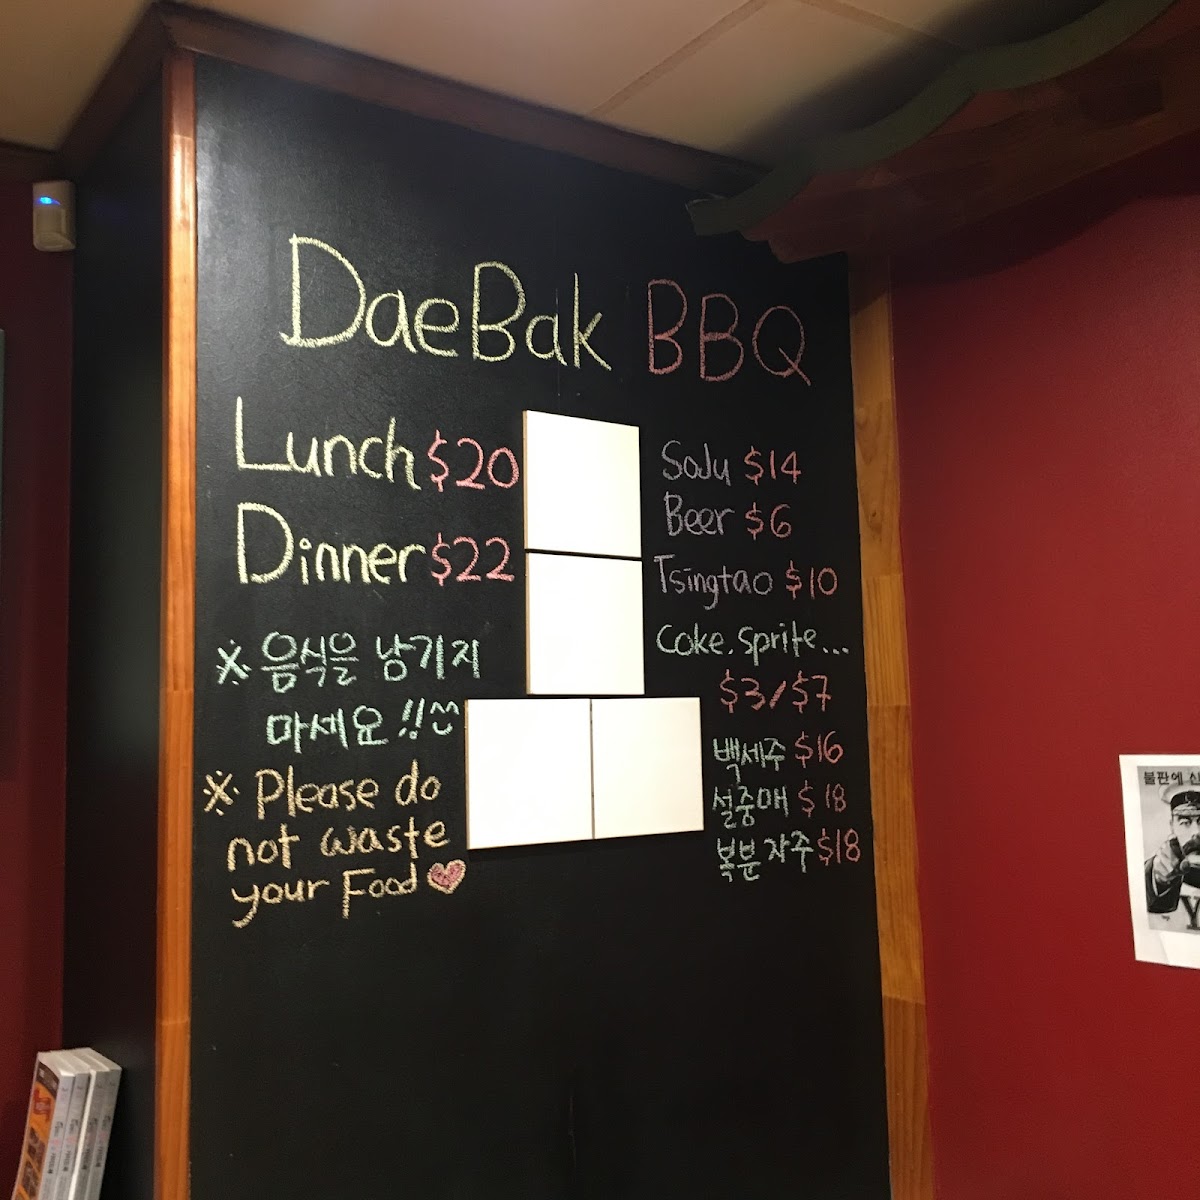 DaeBak BBQ
Lunch $20
Dinner $22
※ 음식을 남기지
마세요!! ^^
※ Please do
not waste
your Food ♥
SoJu $14
Beer $6
Tsingtao $10
Coke. Sprite...
$3/$7
백세주 $16
설중매 $18
복분자주 $18
불판에 신
Y